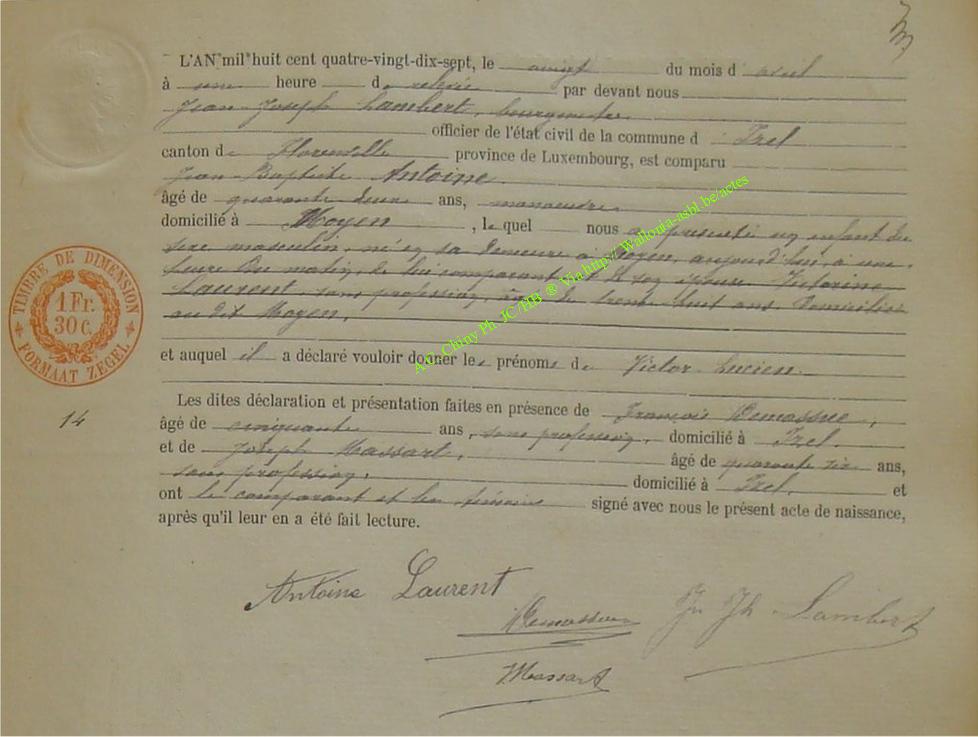 L'AN mil huit cent quatre-vingt-dix-sept, le vingt du mois d' avril
à une heure de relevée par devant nous
Jean Joseph Lambert, bourgmestre
officier de l'état civil de la commune d' Izel
canton de Florenville province de Luxembourg, est comparu
Jean-Baptiste Antoine
âgé de quarante deux ans, manoeuvre
domicilié à Moyen, lequel nous a présenté un enfant du
sexe masculin, né en sa demeure à Moyen, aujourd'hui, à une
heure du matin, de lui comparant et de son épouse Victorine
Laurent sans profession, âgée de trente huit ans, domiciliée
au dit Moyen,
et auquel il a déclaré vouloir donner les prénoms de Victor Lucien.
Les dites déclaration et présentation faites en présence de François Demassue,
14
âgé de cinquante ans, sans profession, domicilié à Izel
et de Joseph Massart, âgé de quarante six ans,
sans profession, domicilié à Izel, et
ont le comparant et les témoins signé avec nous le présent acte de naissance,
après qu'il leur en a été fait lecture.
TIMBRE DE DIMENSION
1 Fr.
30 C.
FORMAAT ZEGEL
A.C. Chiny Ph. JC/HB ® Via http://Wallonia-asbl.be/actes
Antoine Laurent
Jn Jh Lambert
Massart